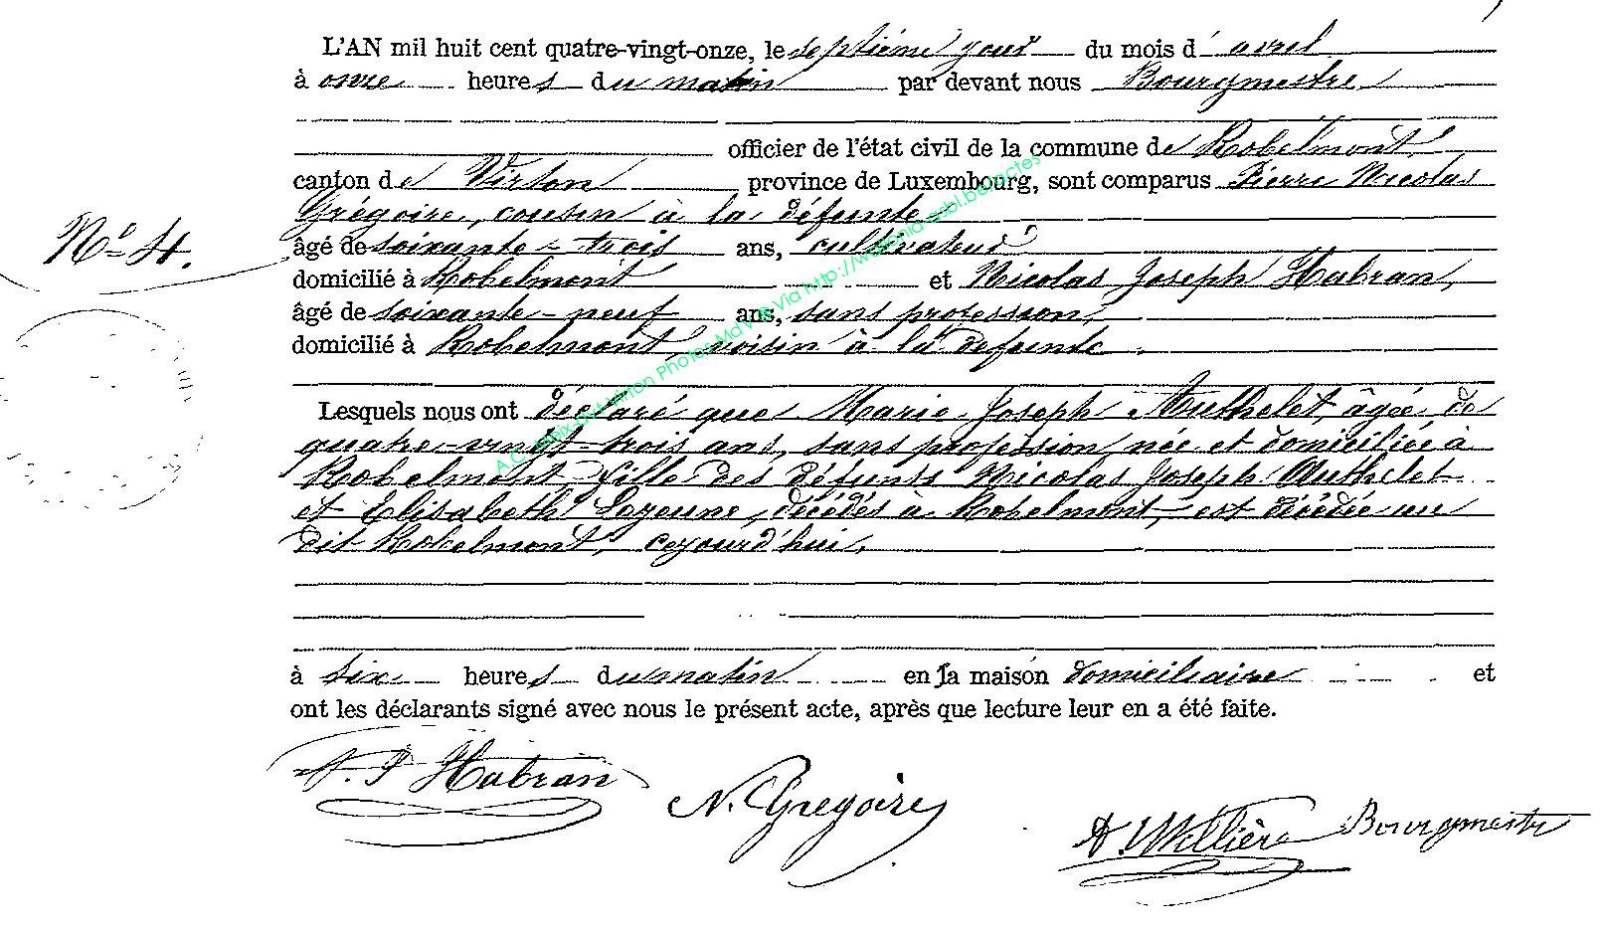 L'AN mil huit cent quatre-vingt-onze, le septième jour du mois d'avril
à onze heures du matin par devant nous Bourgmestre
officier de l'état civil de la commune de Robelmont,
canton de Virton province de Luxembourg, sont comparus Pierre Nicolas
Grégoire, cousin à la défunte
N° 4.
âgé de soixante-trois ans, cultivateur
domicilié à Robelmont et Nicolas Joseph Habran,
âgé de soixante-neuf ans, sans profession,
domicilié à Robelmont, voisin à la défunte.
Lesquels nous ont déclaré que Marie-Joseph Authelet, âgée de
quatre-vingt-trois ans, sans profession, née et domiciliée à
Robelmont, fille des défunts Nicolas Joseph Authelet
et Elisabeth Lozeune, décédés à Robelmont, est décédée au
dit Robelmont, cejourd'hui,
à six heures du matin en la maison domiciliaire et
ont les déclarants signé avec nous le présent acte, après que lecture leur en a été faite.
N. J Habran
N. Gregoire
Bourgmestre
Photos MdV-B Via http://